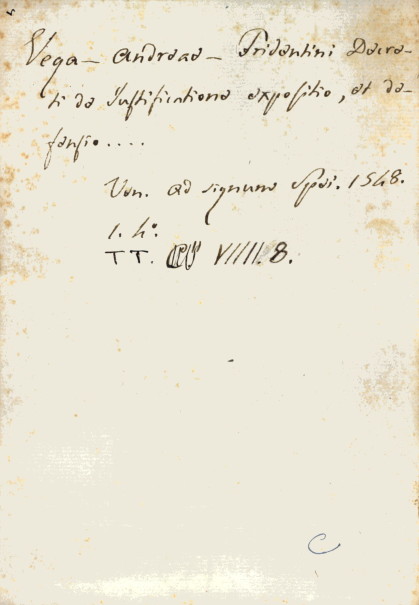 Vega - Andreae - Tridentini Decre-
ti de Justificatione expositio, et de-
fensio....
Ven. ad signum Spei. 1548.
1. 4°.
TT. VIIII. 8.
C